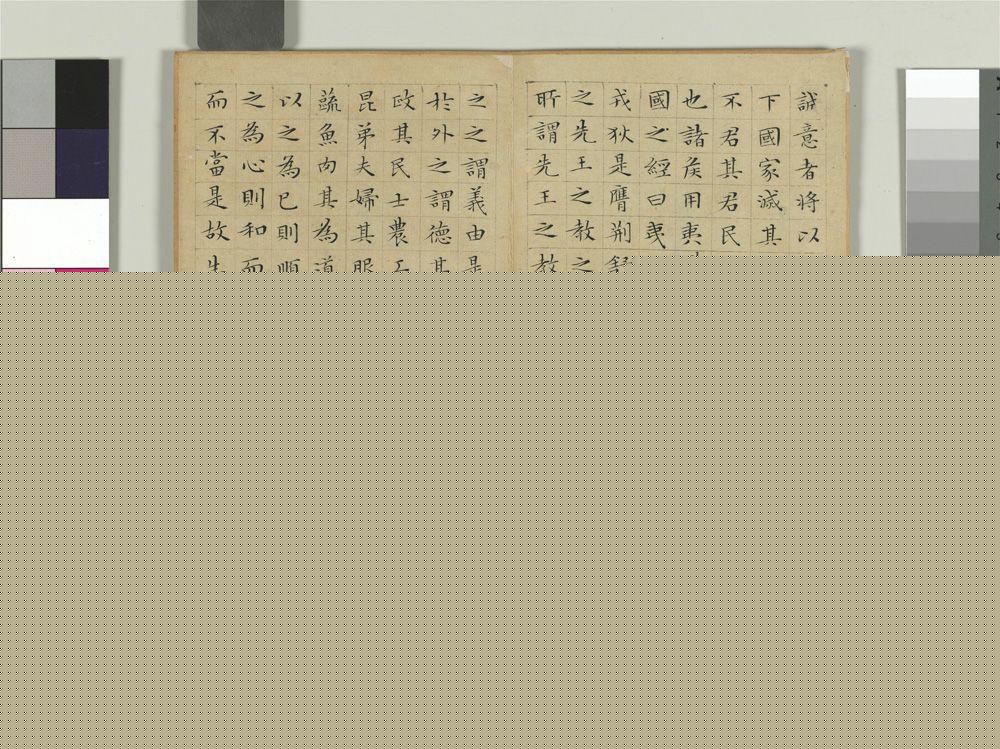 誠意者將以
下國家滅其
不君其君民
也諸侯用夷
國之經曰夷
戎狄是膺荆舒
之先王之教之
所謂先王之教
之之謂義由是
於外之謂德其
政其民士農工
昆弟夫婦其服
蔬魚肉其為道
以之為己則順
之為心則和而
而不當是故生